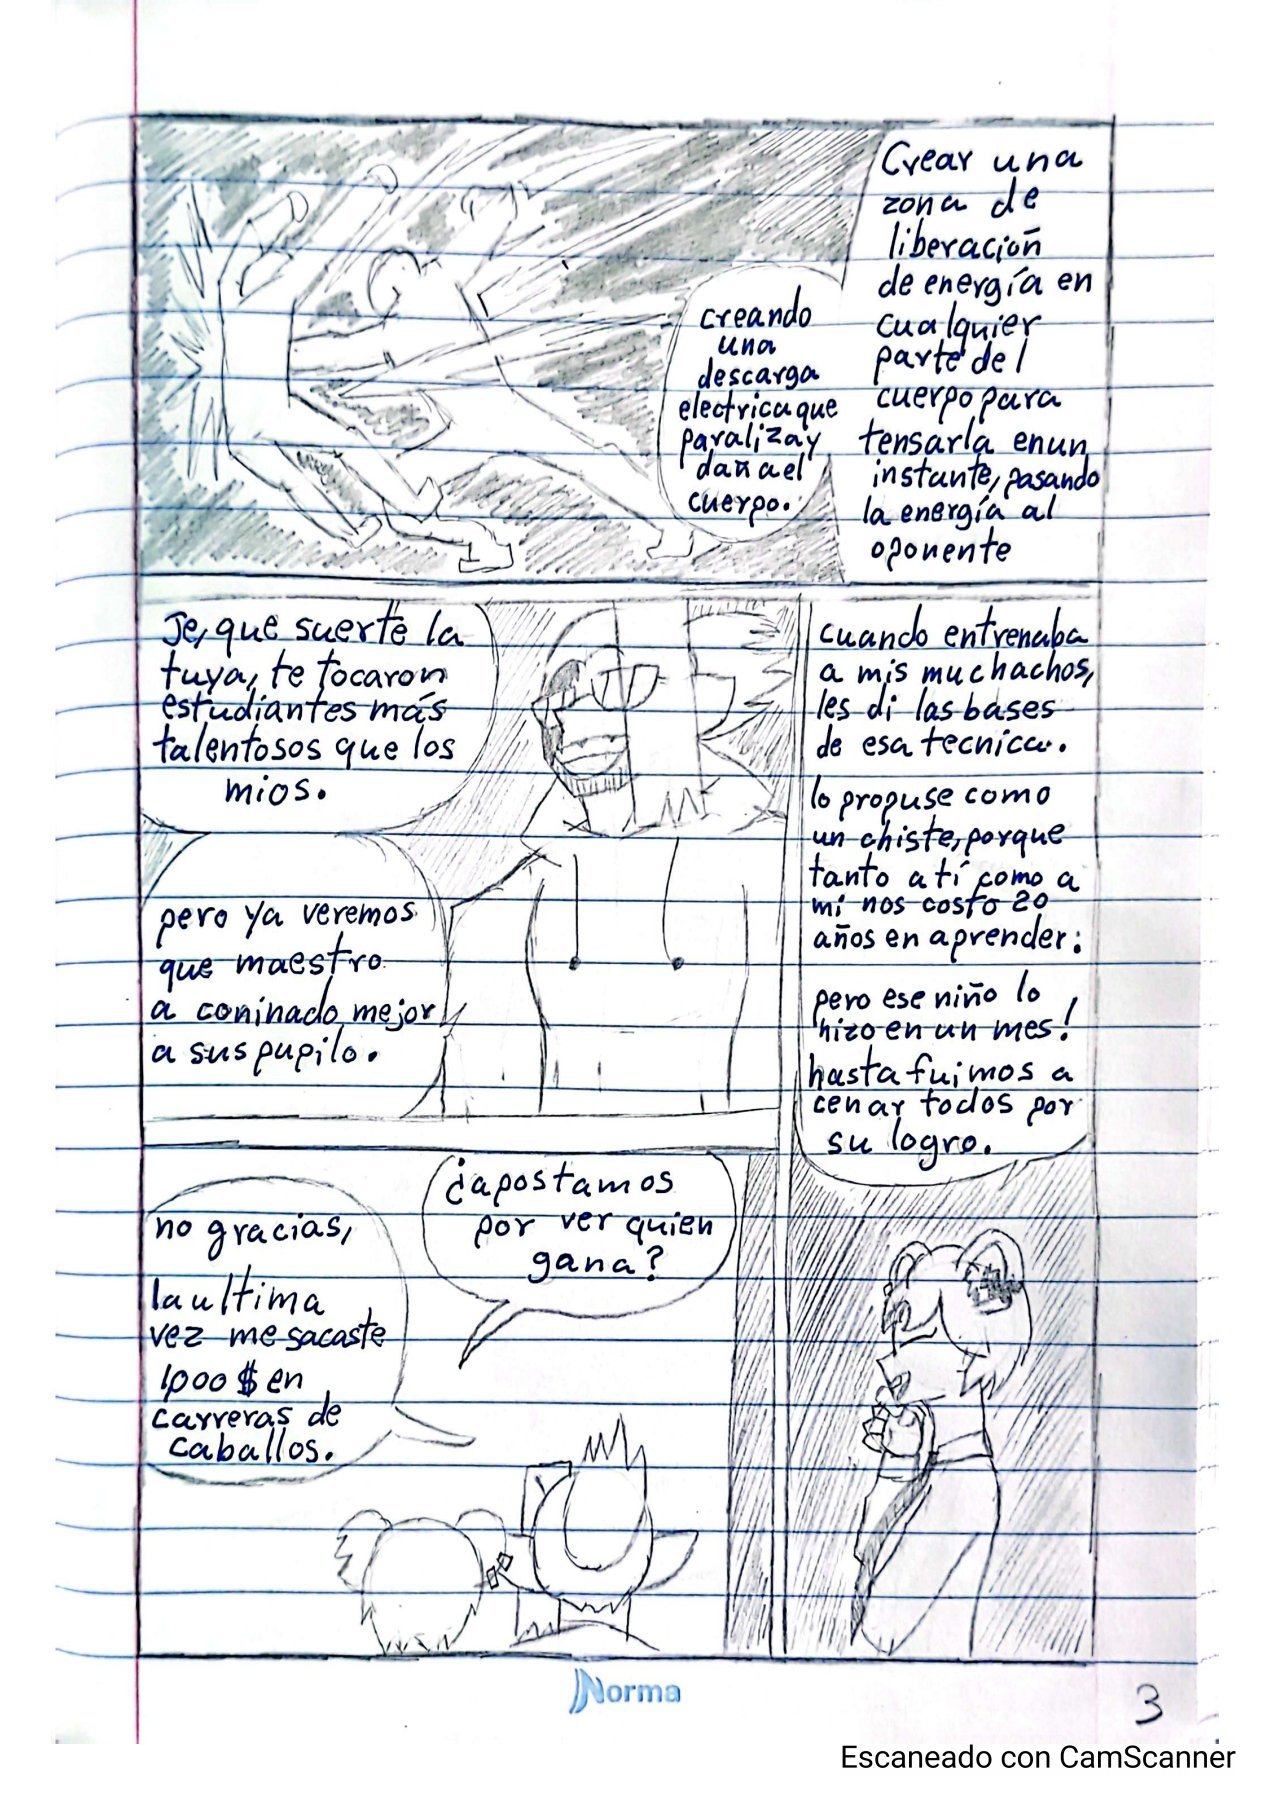 Crear una
zona de
liberación
de energía en
cualquier
parte del
cuerpo para
tensarla en un
instante, pasando
la energía al
oponente
creando
una
descarga
electrica que
paraliza y
daña el
cuerpo.
Je, que suerte la
tuya, te tocaron
estudiantes más
talentosos que los
mios.
pero ya veremos
que maestro
a coninado mejor
a sus pupilo.
cuando entrenaba
a mis muchachos,
les di las bases
de esa tecnica.
lo propuse como
un chiste, porque
tanto a tí como a
mi nos costo 20
años en aprender:
pero ese niño lo
hizo en un mes!
hasta fuimos a
cenar todos por
su logro.
¿apostamos
por ver quien
gana?
no gracias,
la ultima
vez me sacaste
1,000 $ en
carreras de
caballos.
Norma
3
Escaneado con CamScanner